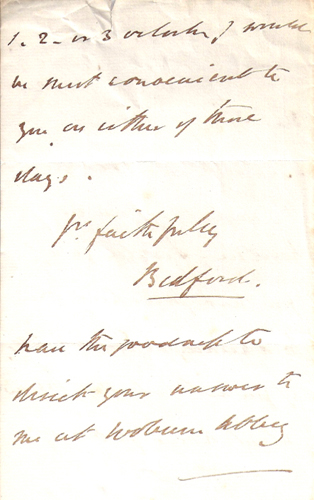 1. 2 - or 3 o'clock, would
be most convenient to
you on either of those
days.
yrs. faithfully
Bedford.
have the goodness to
direct your answer to
me at Woburn Abbey